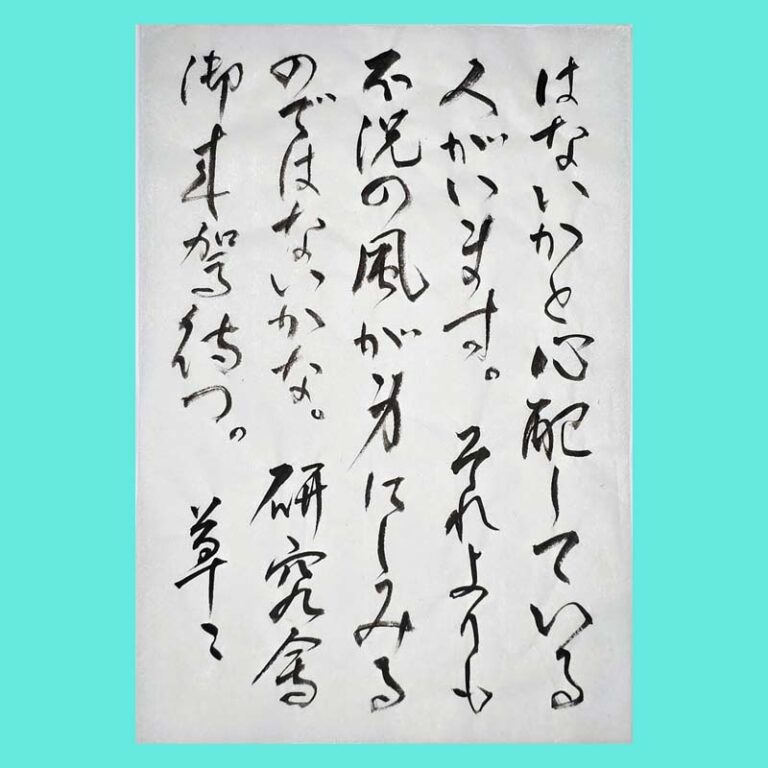 はないかと心配している
人がいます。それよりも
不況の風が身にしみる
のではないかな。研究會
御来駕待つ。草々